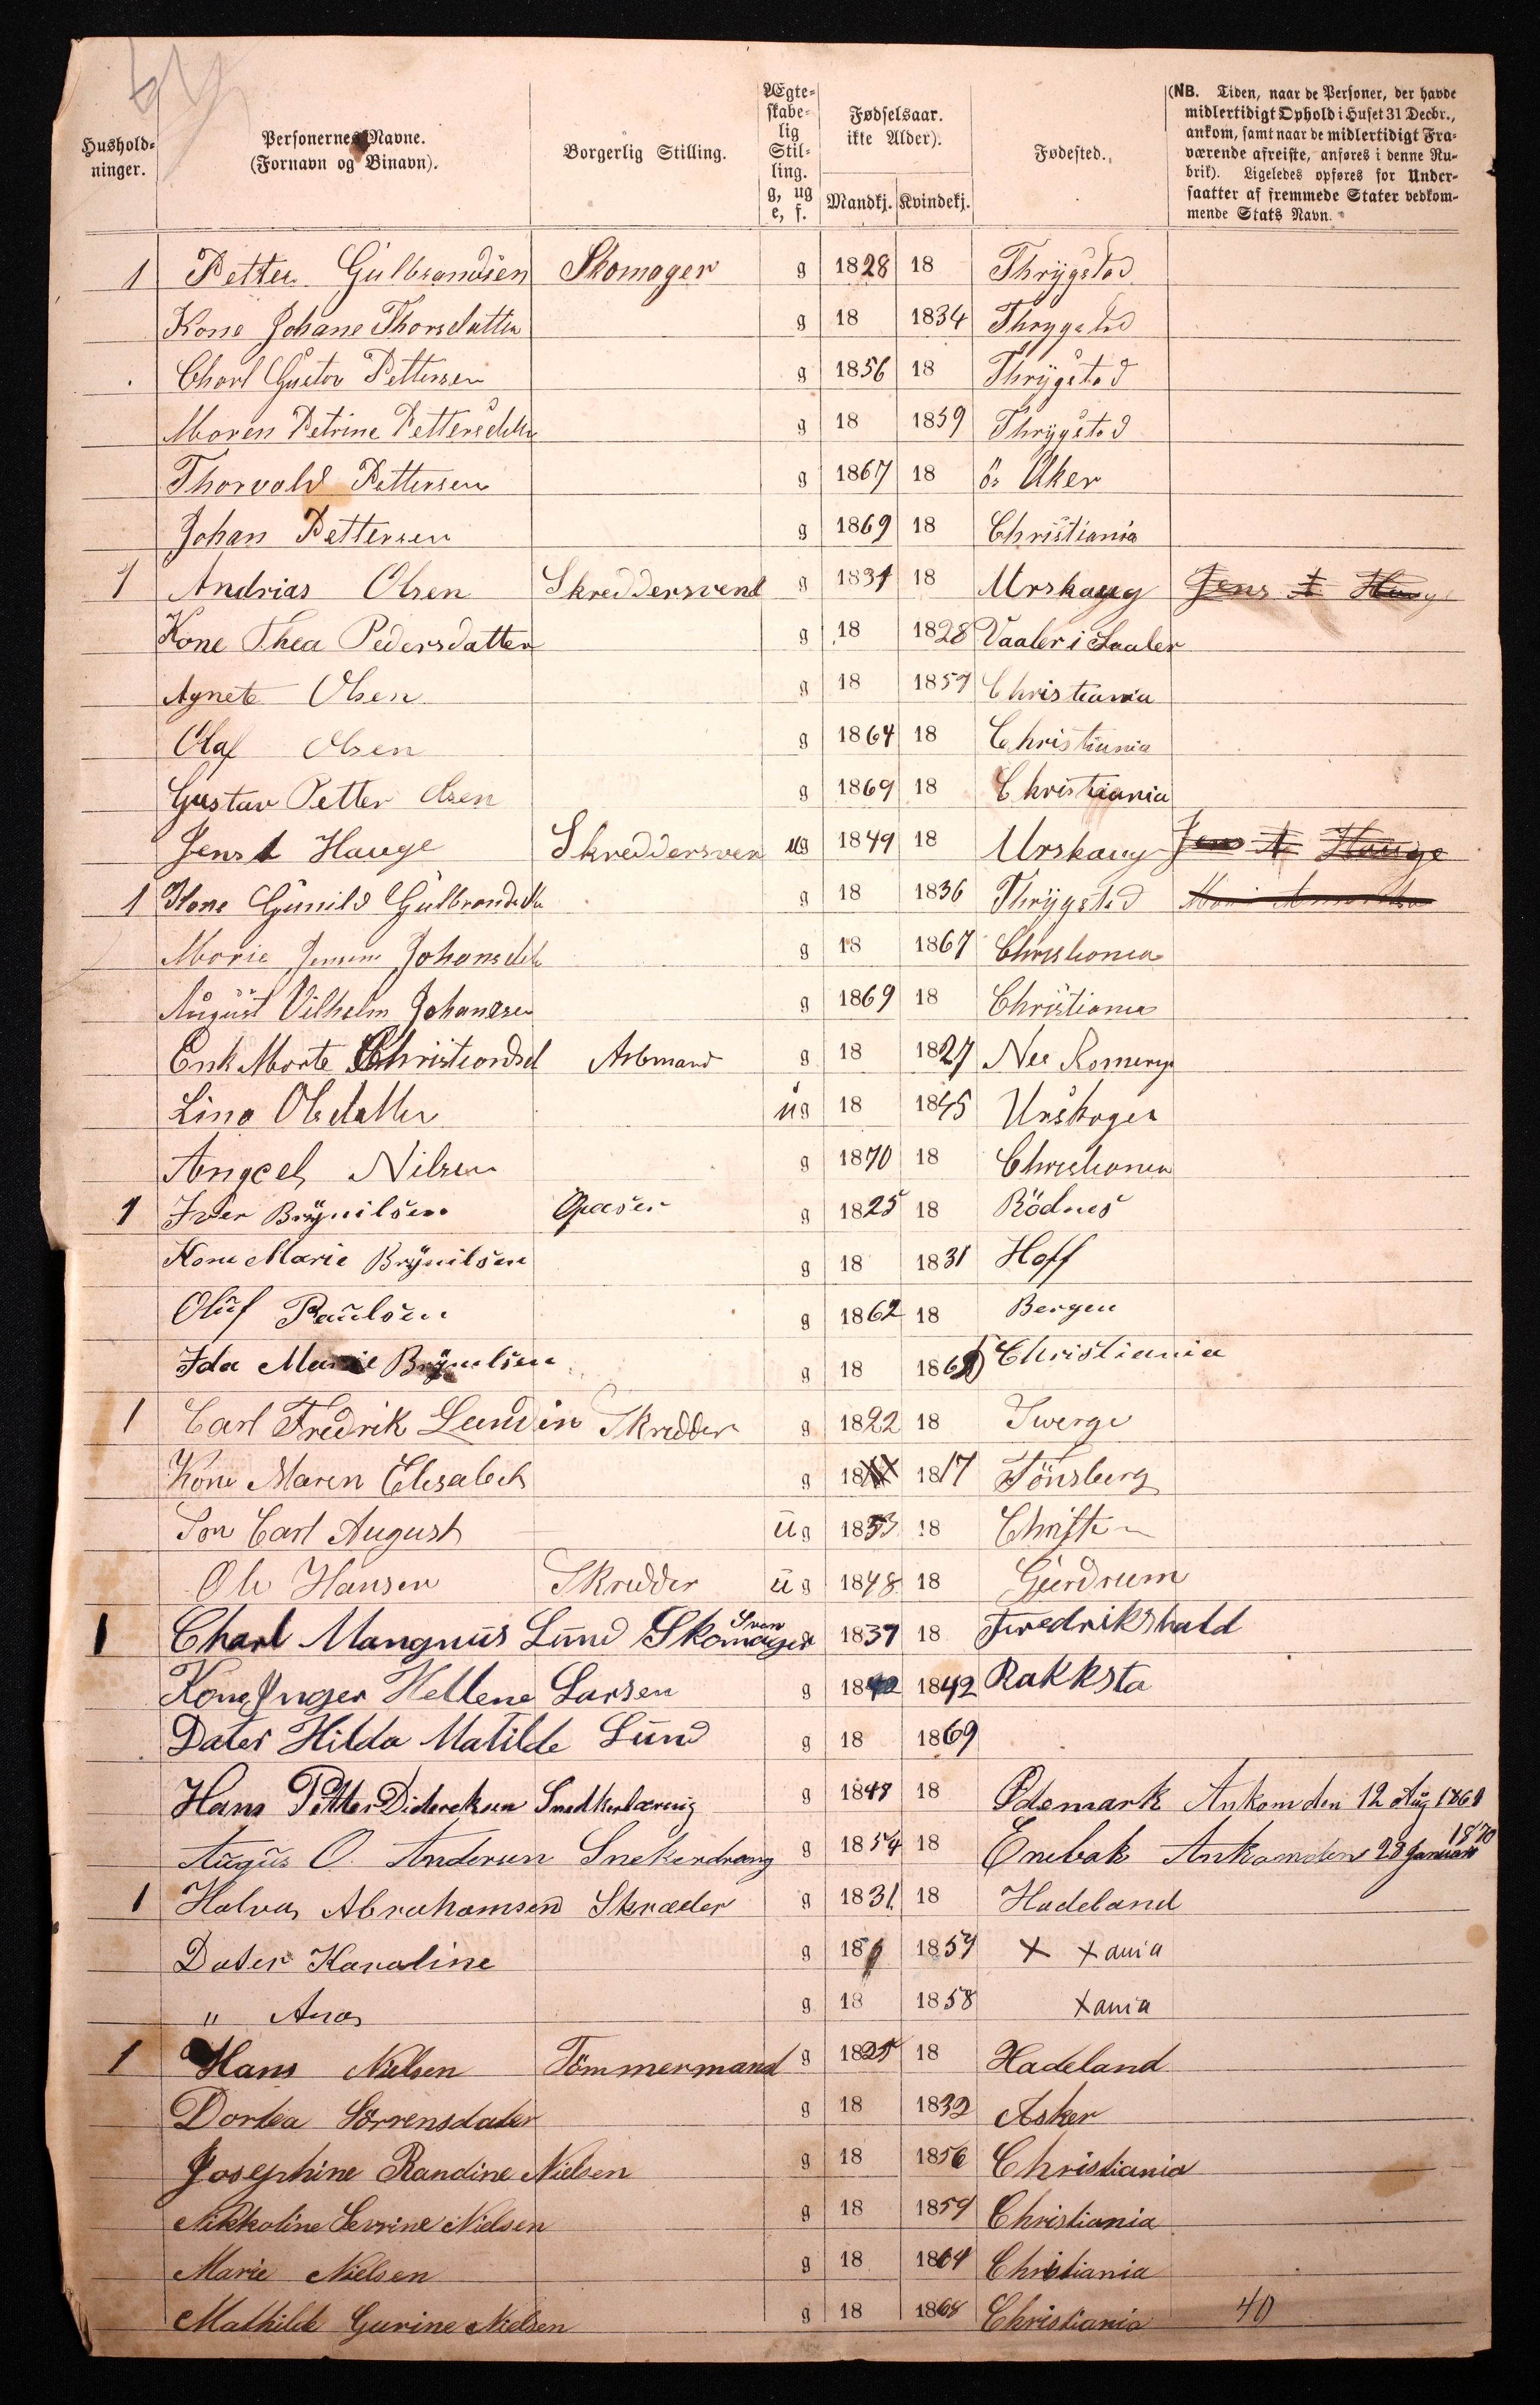 Hushold-
ninger.
Personernes Navne.
(Fornavn og Binavn).
Borgerlig Stilling.
Ægte-
skabe-
lig
Stil-
ling.
g, ug
e, f.
Fødselsaar.
ikke Alder).
Mandkj. Kvindekj.
Fødested.
(NB. Tiden, naar de Personer, der havde
midlertidigt Ophold i Huset 31 Decbr.,
ankom, samt naar de midlertidigt Fra-
værende afreiste, anføres i denne Ru-
brik). Ligeledes opføres for Under-
saatter af fremmede Stater vedkom-
mende Stats Navn.
1 Petter Gulbrandsen Skomager g 1828 18 Thrygstad
Kone Johane Thorsdatter g 18 1834 Thrygstad
Charl Gustav Pettersen g 1856 18 Thrygstad
Maren Petrine Pettersdtr g 18 1859 Thrygstad
Thorvald Pettersen g 1867 18 ö. Aker
Johan Pettersen g 1869 18 Christiania
1 Andrias Olsen Skreddersvend g 1831 18 Urskaug Jens A Hauge
Kone Thea Pedersdatter g 18 1828 Vaaler i Saaler
Agnete Olsen g 18 1857 Christiania
Olaf Olsen g 1864 18 Christiania
Gustav Petter Olsen g 1869 18 Christiania
Jens A Hauge Skreddersven ug 1849 18 Urskaug Jens A Hauge
1 Kone Gunild Gulbrandsdtr g 18 1836 Thrygstad
Marie Johansdtr g 18 1867 Christiania
August Vilhelm Johansen g 1869 18 Christiania
Enk Marte Christiansd Arbmand g 18 1827 Nes Romerige
Lina Olsdatter ug 18 1845 Urskogen
Angcel Nilsen g 1870 18 Christiania
1 Iver Brynilsen Opaser g 1825 18 Rödnes
Kone Marie Brynilsen g 18 1831 Hoff
Oluf Paulsen g 1862 18 Bergen
Ida Marie Brynilsen g 18 1869 Christiania
1 Carl Fredrik Lundin Skredder g 1822 18 Sverge
Kone Maren Elisabeth g 18 1817 Tönsberg
Søn Carl August ug 1853 18 Christ
Ole Hansen Skredder ug 1848 18 Gjerdrum
1 Charl Mangnus Lund Skomager Sven g 1837 18 Fredrikshald
Kone Inger Hellene Larsen g 1842 1842 Rakksta
Dater Hilda Matilde Lund g 18 1869
Hans Petter Didereksen Snedkerlærnig g 1848 18 Ødemark Ankom den 12 Aug 1868
Augus O. Andersen Snekerdræng g 1854 18 Enebak Ankom den 28 Januar 1870
1 Halvar Abrahamsen Skræder g 1831 18 Hadeland
Dater Karoline g 18 1857 x xania
" Ana g 18 1858 xania
1 Hans Nielsen Tömmermand g 1825 18 Hadeland
Dortea Sörrensdater g 18 1832 Asker
Josephine Randine Nielsen g 18 1856 Christiania
Nikkoline Sevrine Nielsen g 18 1859 Christiania
Marie Nielsen g 18 1864 Christiania
Mathilde Gurine Nielsen g 18 1868 Christiania 40